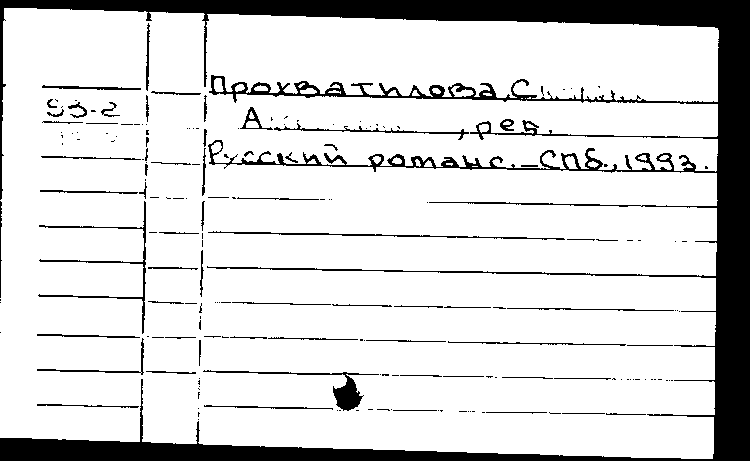 Прохватилова, С
93-2
А , ред.
Русский романс. – СПб., 1993.